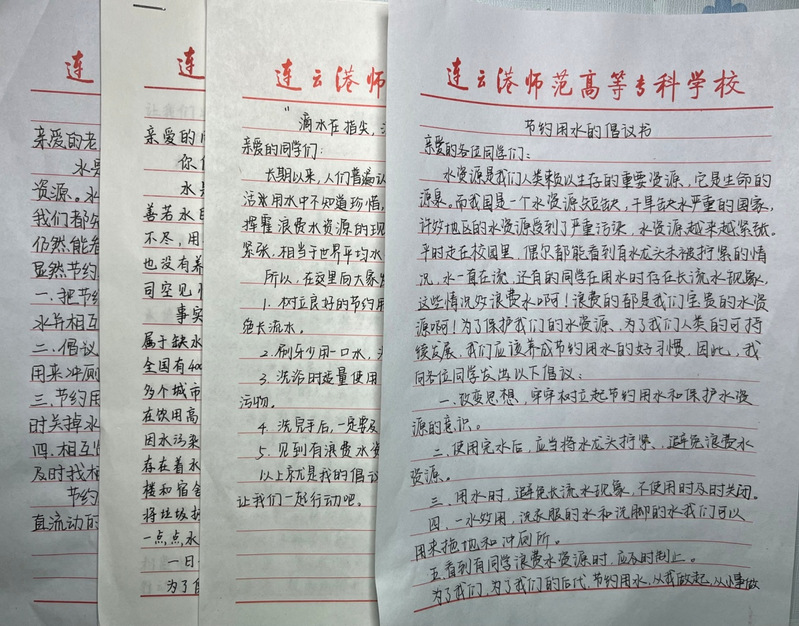 连
亲爱的老
水是
资源。水
我们都知
仍然能看
显然节约
一、把节约
水并相互
二、倡议
用来冲厕
三、节约用
时关掉水
四、相互
及时找
节约
直流动的
连
亲爱的同
你们
水是
善若水
不尽,用
也没有养
司空见惯
事实
属于缺水
全国有400
多个城市
在饮用高
因水污染
存在着水
楼和宿舍
将垃圾
一点点水
一日
为了
连云港师
“滴水在指尖,
亲爱的同学们:
长期以来,人们普遍认
活常用水中不知道珍惜,
挥霍浪费水资源的现
紧张,相当于世界平均水
所以,在这里向大家
1. 树立良好的节约用
免长流水。
2. 刷牙少用一口水,
3. 洗浴时适量使用
污物。
4. 洗完手后,一定要及
5. 见到有浪费水资
以上就是我的倡议
让我们一起行动吧。
连云港师范高等专科学校
节约用水的倡议书
亲爱的各位同学们:
水资源是我们人类赖以生存的重要资源,它是生命的
源泉。而我国是一个水资源短缺,干旱缺水严重的国家,
许多地区的水资源受到了严重污染,水资源越来越紧张。
平时走在校园里,偶尔都能看到有水龙头未被拧紧的情
况,水一直在流,还有的同学在用水时存在长流水现象,
这些情况好浪费水啊!浪费的都是我们宝贵的水资
源啊!为了保护我们的水资源,为了我们人类的可持
续发展,我们应该养成节约用水的好习惯,因此,我
向各位同学发出以下倡议:
一、改变思想,牢牢树立起节约用水和保护水资
源的意识。
二、使用完水后,应当将水龙头拧紧,避免浪费水
资源。
三、用水时,避免长流水现象,不使用时及时关闭。
四、一水妙用,洗衣服的水和洗脚的水我们可以
用来拖地和冲厕所。
五、看到有同学浪费水资源时,应及时制止。
为了我们,为了我们的后代,节约用水,从我做起,从小事做